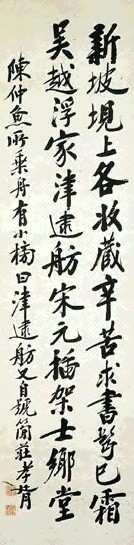 新坡垷上各收藏辛苦求書鬢已霜
吳越浮家津逮舫宋元插架士鄉堂
陳仲魚所乘舟有小橋曰津逮舫又自號簡莊孝胥